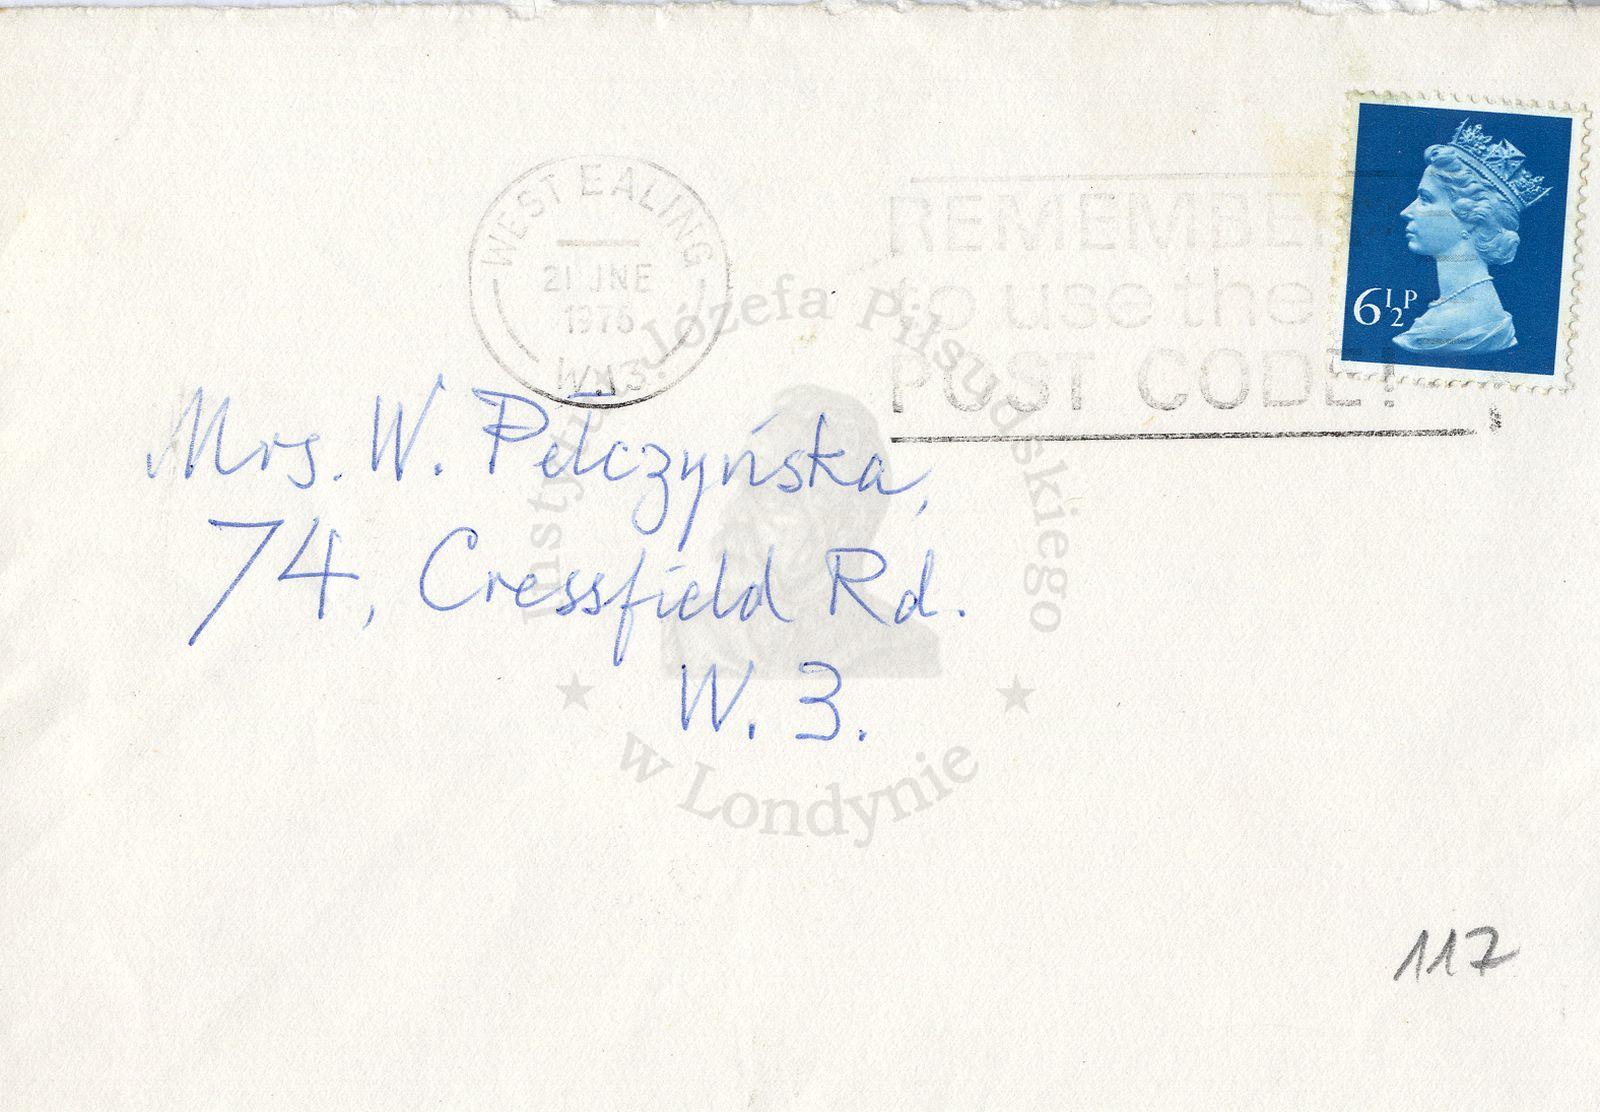 WEST EALING
21 JNE
1976
W.13.
REMEMBER
to use the
POST CODE!
6½P
Mrs. W. Pełczyńska,
74, Cressfield Rd.
W. 3.
Instytut Józefa Piłsudskiego
w Londynie
117